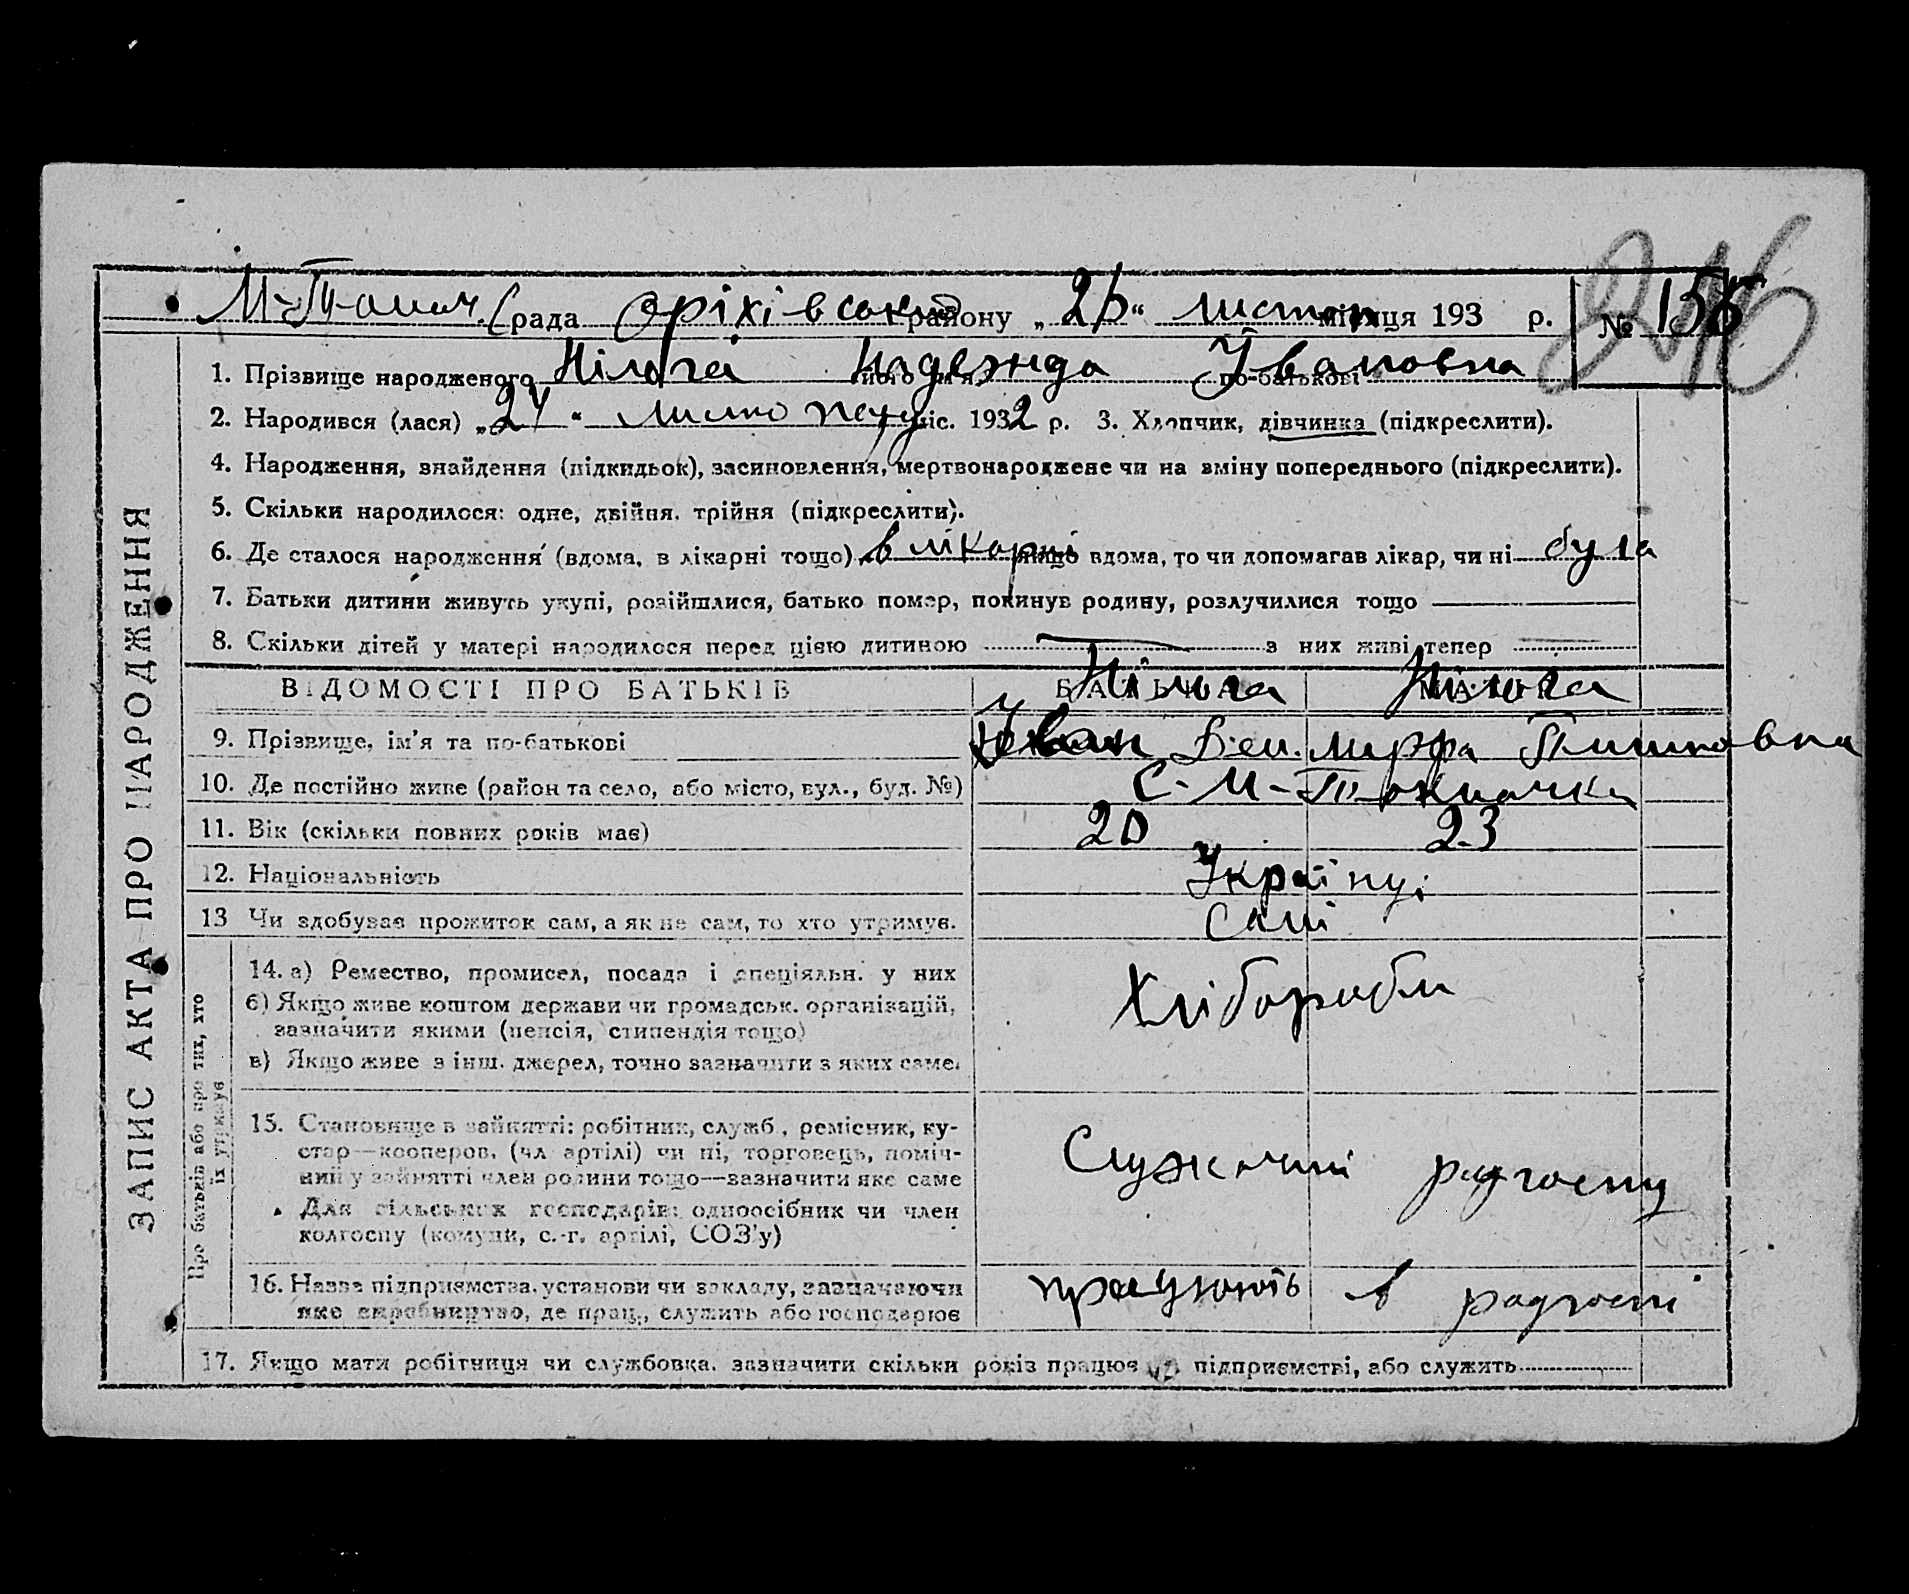 рада Оріхівськ району „26“ листоп місяця 193 р. № 155
216
1. Прізвище народженого його ім'я Надежда по-батькові Івановна
2. Народився (лася) „24“ листопаду міс. 1932 р. 3. Хлопчик, дівчинка (підкреслити).
4. Народження, знайдення (підкидьок), засиновлення, мертвонароджене чи на зміну попереднього (підкреслити).
5. Скільки народилося: одне, двійня, трійня (підкреслити).
6. Де сталося народження (вдома, в лікарні тощо) в лікарні якщо вдома, то чи допомагав лікар, чи ні була
7. Батьки дитини живуть укупі, розійшлися, батько помер, покинув родину, розлучилися тощо
8. Скільки дітей у матері народилося перед цією дитиною з них живі тепер
ЗАПИС АКТА ПРО НАРОДЖЕННЯ
ВІДОМОСТІ ПРО БАТЬКІВ БАТЬКА МАТЕРІ
9. Прізвище, ім'я та по-батькові Іван
10. Де постійно живе (район та село, або місто, вул., буд. №) С. М-Токмачка
11. Вік (скільки повних років має) 20 23
12. Національність Українці
13 Чи здобуває прожиток сам, а як не сам, то хто утримує. Самі
Про батьків або про тих, хто їх утримує
14. а) Ремество, промисел, посада і спеціяльн. у них Хлібороби
б) Якщо живе коштом держави чи громадськ. організацій,
зазначити якими (пенсія, стипендія тощо)
в) Якщо живе з інш. джерел, точно зазначити з яких саме.
15. Становище в зайнятті: робітник, служб., ремісник, ку-
стар—кооперов. (чл. артілі) чи ні, торговець, поміч-
ний у зайнятті член родини тощо—зазначити яке саме Служачий радгоспу
Для сільських господарів: одноосібник чи член
колгоспу (комуни, с.-г. артілі, СОЗ'у)
16. Назва підприємства, установи чи закладу, зазначаючи працюють в радгоспі
яке виробництво, де прац., служить або господарює
17. Якщо мати робітниця чи службовка, зазначити скільки років працює на підприємстві, або служить